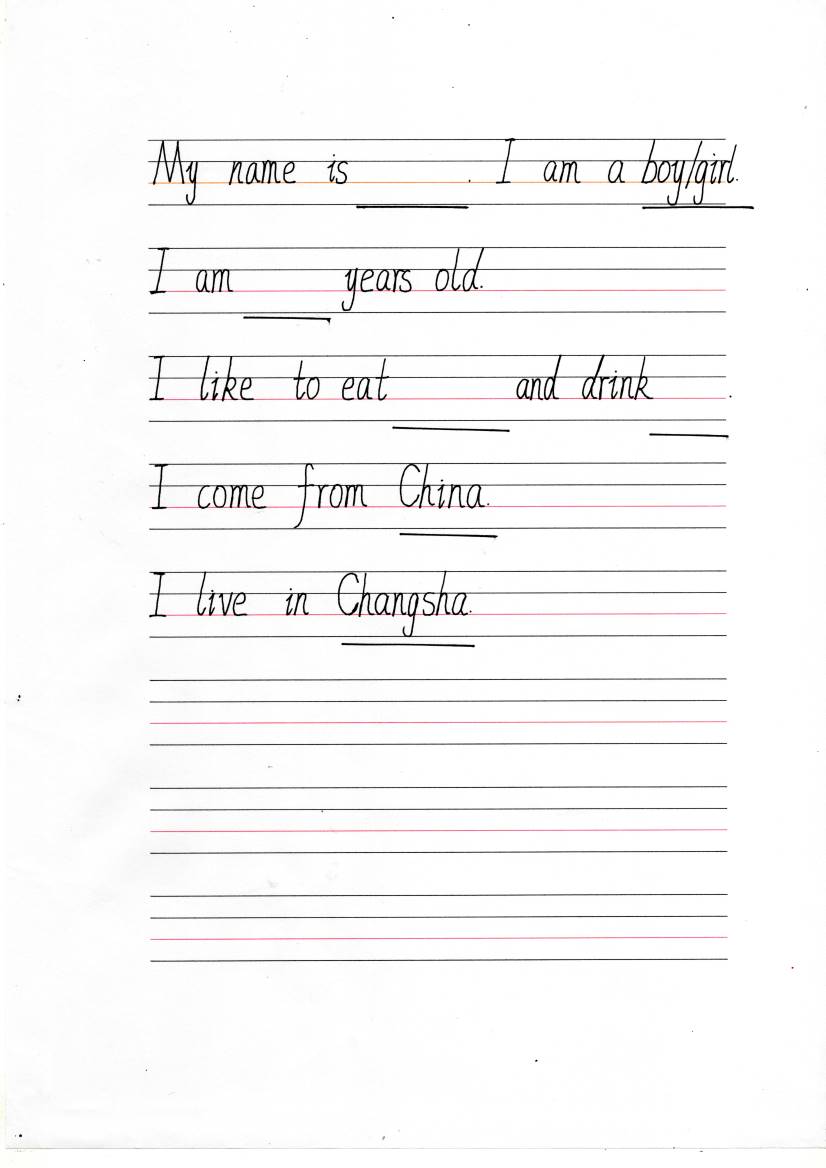 My name is ______. I am a boy/girl.
I am ______ years old.
I like to eat ______ and drink ______.
I come from China.
I live in Changsha.